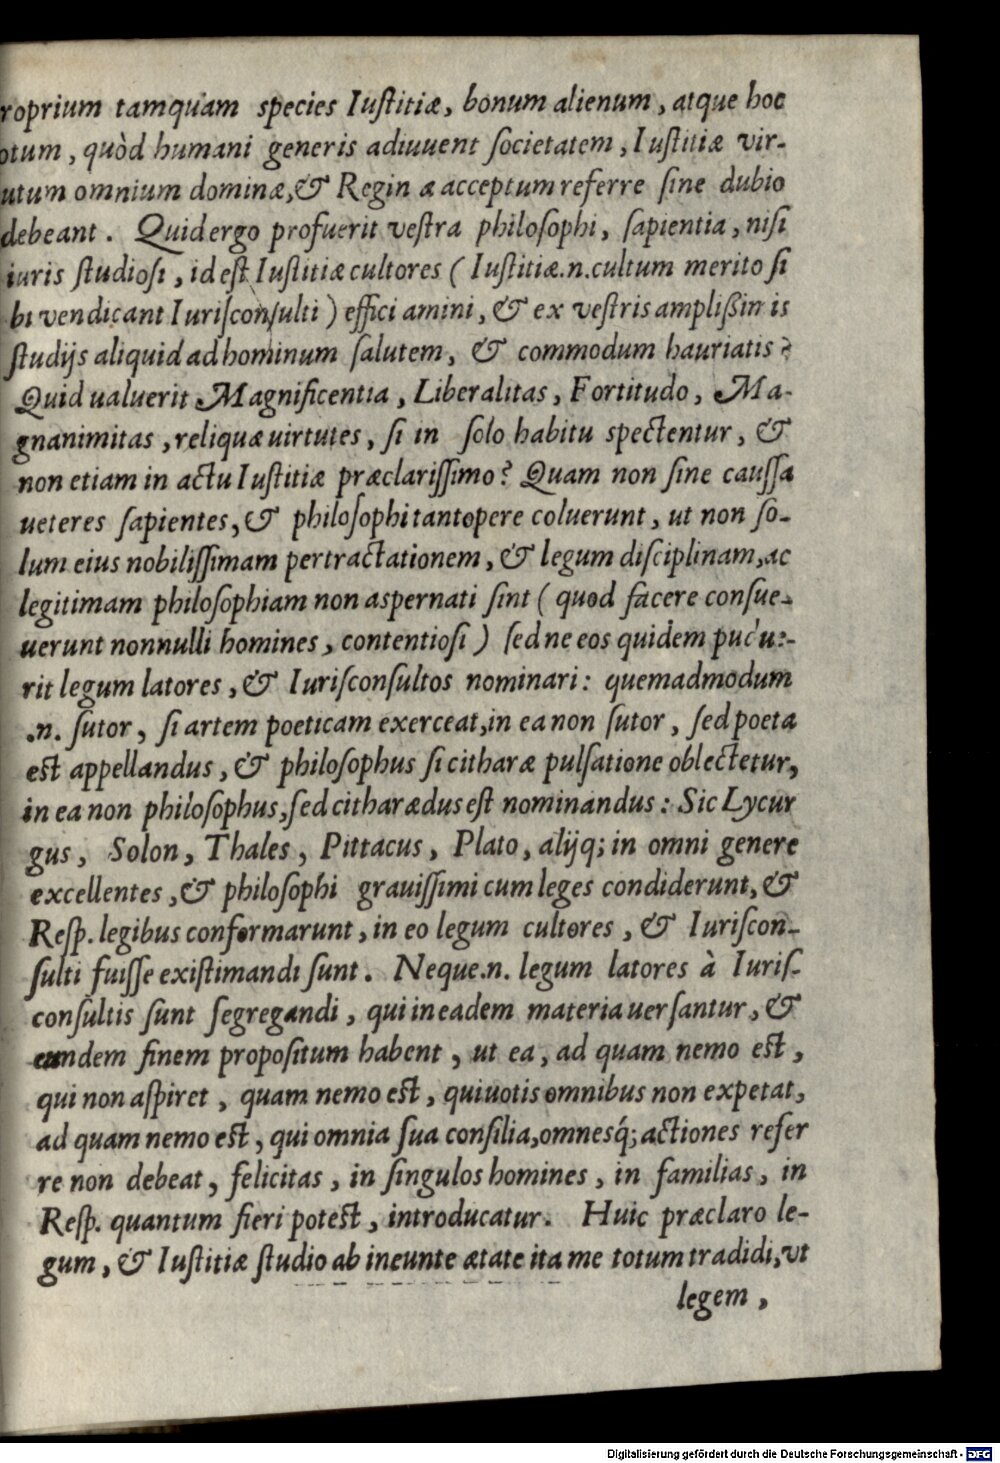 roprium tamquam species Iuſtitiæ, bonum alienum, atque hoc
otum, quòd humani generis adiuuent ſocietatem, Iuſtitiæ vir-
utum omnium dominæ, & Regin æ acceptum referre ſine dubio
debeant. Quid ergo profuerit veſtra philoſophi, ſapientia, niſi
iuris ſtudioſi, id eſt Iuſtitiæ cultores (Iuſtitiæ.n.cultum merito ſi
bi vendicant Iuriſconſulti) effici amini, & ex veſtris amplißim is
ſtudijs aliquid ad hominum ſalutem, & commodum hauriatis?
Quid ualuerit Magnificentia, Liberalitas, Fortitudo, Ma-
gnanimitas, reliquæ uirtutes, ſi in ſolo habitu spectentur, &
non etiam in actu Iuſtitiæ præclariſſimo? Quam non ſine cauſſa
ueteres ſapientes, & philoſophi tantopere coluerunt, ut non ſo-
lum eius nobiliſſimam pertractationem, & legum diſciplinam, ac
legitimam philoſophiam non aspernati ſint (quod facere conſue-
uerunt nonnulli homines, contentioſi) ſed ne eos quidem
rit legum latores, & Iuriſconſultos nominari: quemadmodum
.n. ſutor, ſi artem poeticam exerceat, in ea non ſutor, ſed poeta
eſt appellandus, & philoſophus ſi citharæ pulſatione oblectetur,
in ea non philoſophus, ſed citharædus eſt nominandus: Sic Lycur
gus, Solon, Thales, Pittacus, Plato, alijq; in omni genere
excellentes, & philoſophi grauiſſimi cum leges condiderunt, &
Reſp. legibus conformarunt, in eo legum cultores, & Iuriſcon-
ſulti fuiſſe exiſtimandi ſunt. Neque.n. legum latores à Iuriſ-
conſultis ſunt ſegregandi, qui in eadem materia uerſantur, &
eundem finem propoſitum habent, ut ea, ad quam nemo eſt,
qui non aſpiret, quam nemo eſt, qui uotis omnibus non expetat,
ad quam nemo eſt, qui omnia ſua conſilia, omnesq́; actiones refer
re non debeat, felicitas, in ſingulos homines, in familias, in
Reſp. quantum fieri poteſt, introducatur. Huic præclaro le-
gum, & Iuſtitiæ ſtudio ab ineunte ætate ita me totum tradidi, vt
legem,
Digitalisierung gefördert durch die Deutsche Forschungsgemeinschaft - DFG